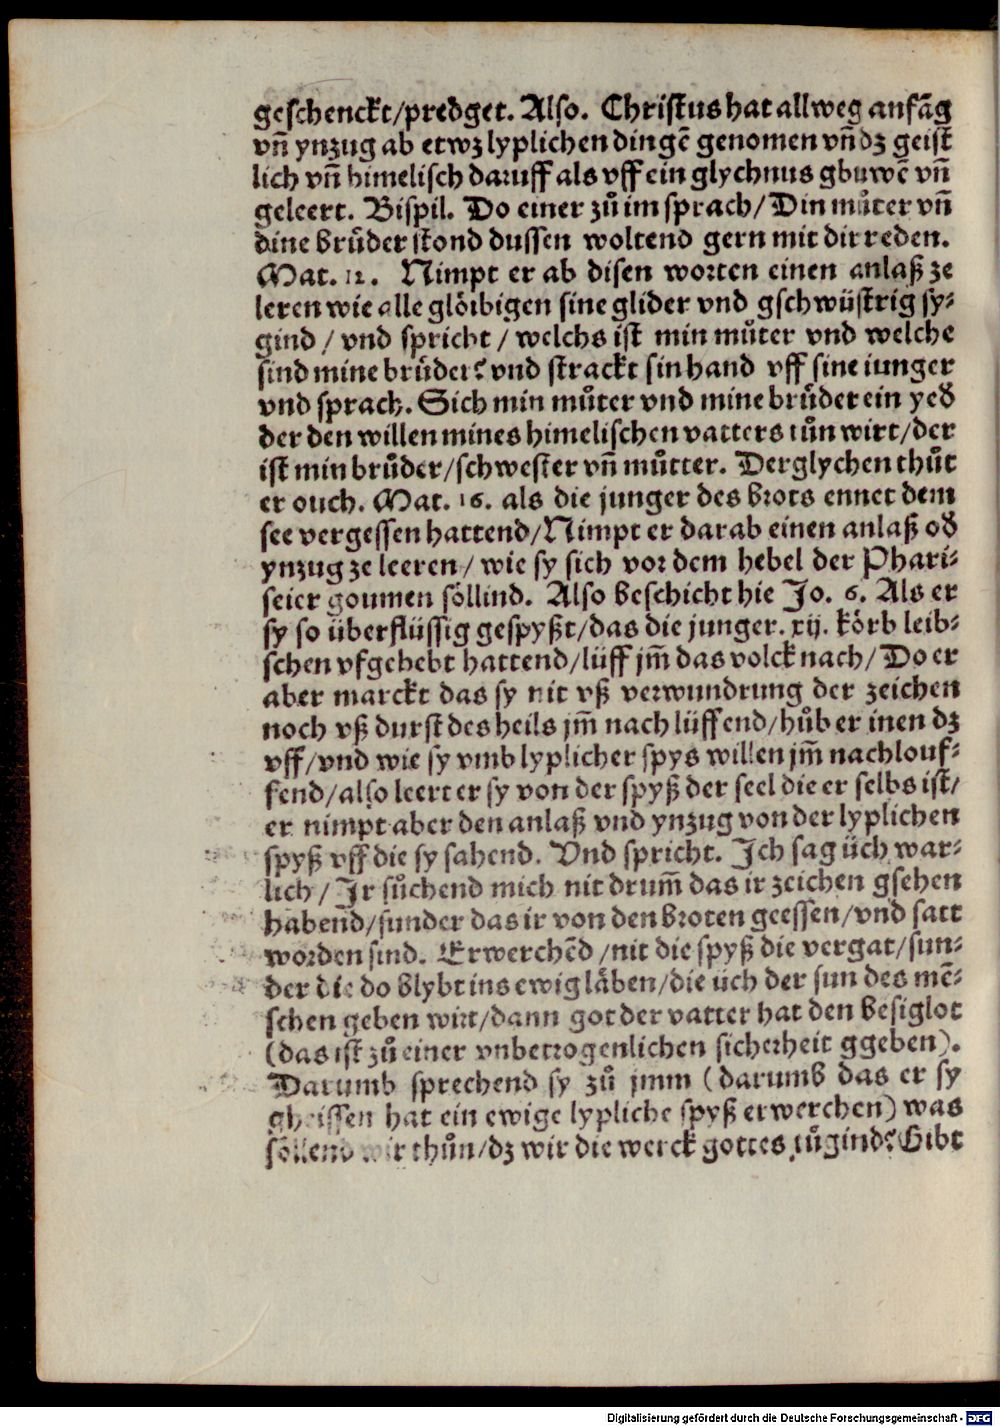 geschenckt/predget. Also. Christus hat allweg anfāg
vn̄ ynzug ab etwz lyplichen dingē genomen vn̄ dz geist
lich vn̄ himelisch daruff als vff ein glychnus gbuwē vn̄
geleert. Bispil. Do einer zů im sprach/ Din můter vn̄
dine brůder stond dussen woltend gern mit dir reden.
Mat. 12. Nimpt er ab disen worten einen anlaß ze
leren wie alle glöibigen sine glider vnd gschwüstrig sy⸗
gind / vnd spricht / welchs ist min můter vnd welche
sind mine brůder? vnd strackt sin hand vff sine iunger
vnd sprach. Sich min můter vnd mine brůder ein yed
der den willen mines himelischen vatters tůn wirt/der
ist min brůder/schwester vn̄ můtter. Derglychen thůt
er ouch. Mat. 16. als die junger des brots ennet dem
see vergessen hattend/Nimpt er darab einen anlaß od
ynzug ze leeren/ wie sy sich vor dem hebel der Phari⸗
seier goumen söllind. Also beschicht hie Jo. 6. Als er
sy so überflüssig gespyßt/das die junger. xij. körb leib⸗
schen vfgehebt hattend/lüff jm̄ das volck nach/ Do er
aber marckt das sy nit vß verwundrung der zeichen
noch vß durst des heils jm̄ nach lüffend/hůb er inen dz
vff/vnd wie sy vmb lyplicher spys willen jm̄ nachlouf⸗
fend/also leert er sy von der spyß der seel die er selbs ist/
er nimpt aber den anlaß vnd ynzug von der lyplichen
spyß vff die sy sahend. Vnd spricht. Ich sag üch war⸗
lich / Ir sůchend mich nit drum̄ das ir zeichen gsehen
habend/sunder das ir von den broten geessen/vnd satt
worden sind. Erwerchēd /nit die spyß die vergat/sun⸗
der die do blybt ins ewig läben/die üch der sun des mē⸗
schen geben wirt/dann got der vatter hat den besiglot
(das ist zů einer vnbetrogenlichen sicherheit ggeben).
Darumb sprechend sy zů jmm (darumb das er sy
gheissen hat ein ewige lypliche spyß erwerchen) was
söllend wir thůn/dz wir die werck gottes tůgind? Gibt
Digitalisierung gefördert durch die Deutsche Forschungsgemeinschaft - DFG